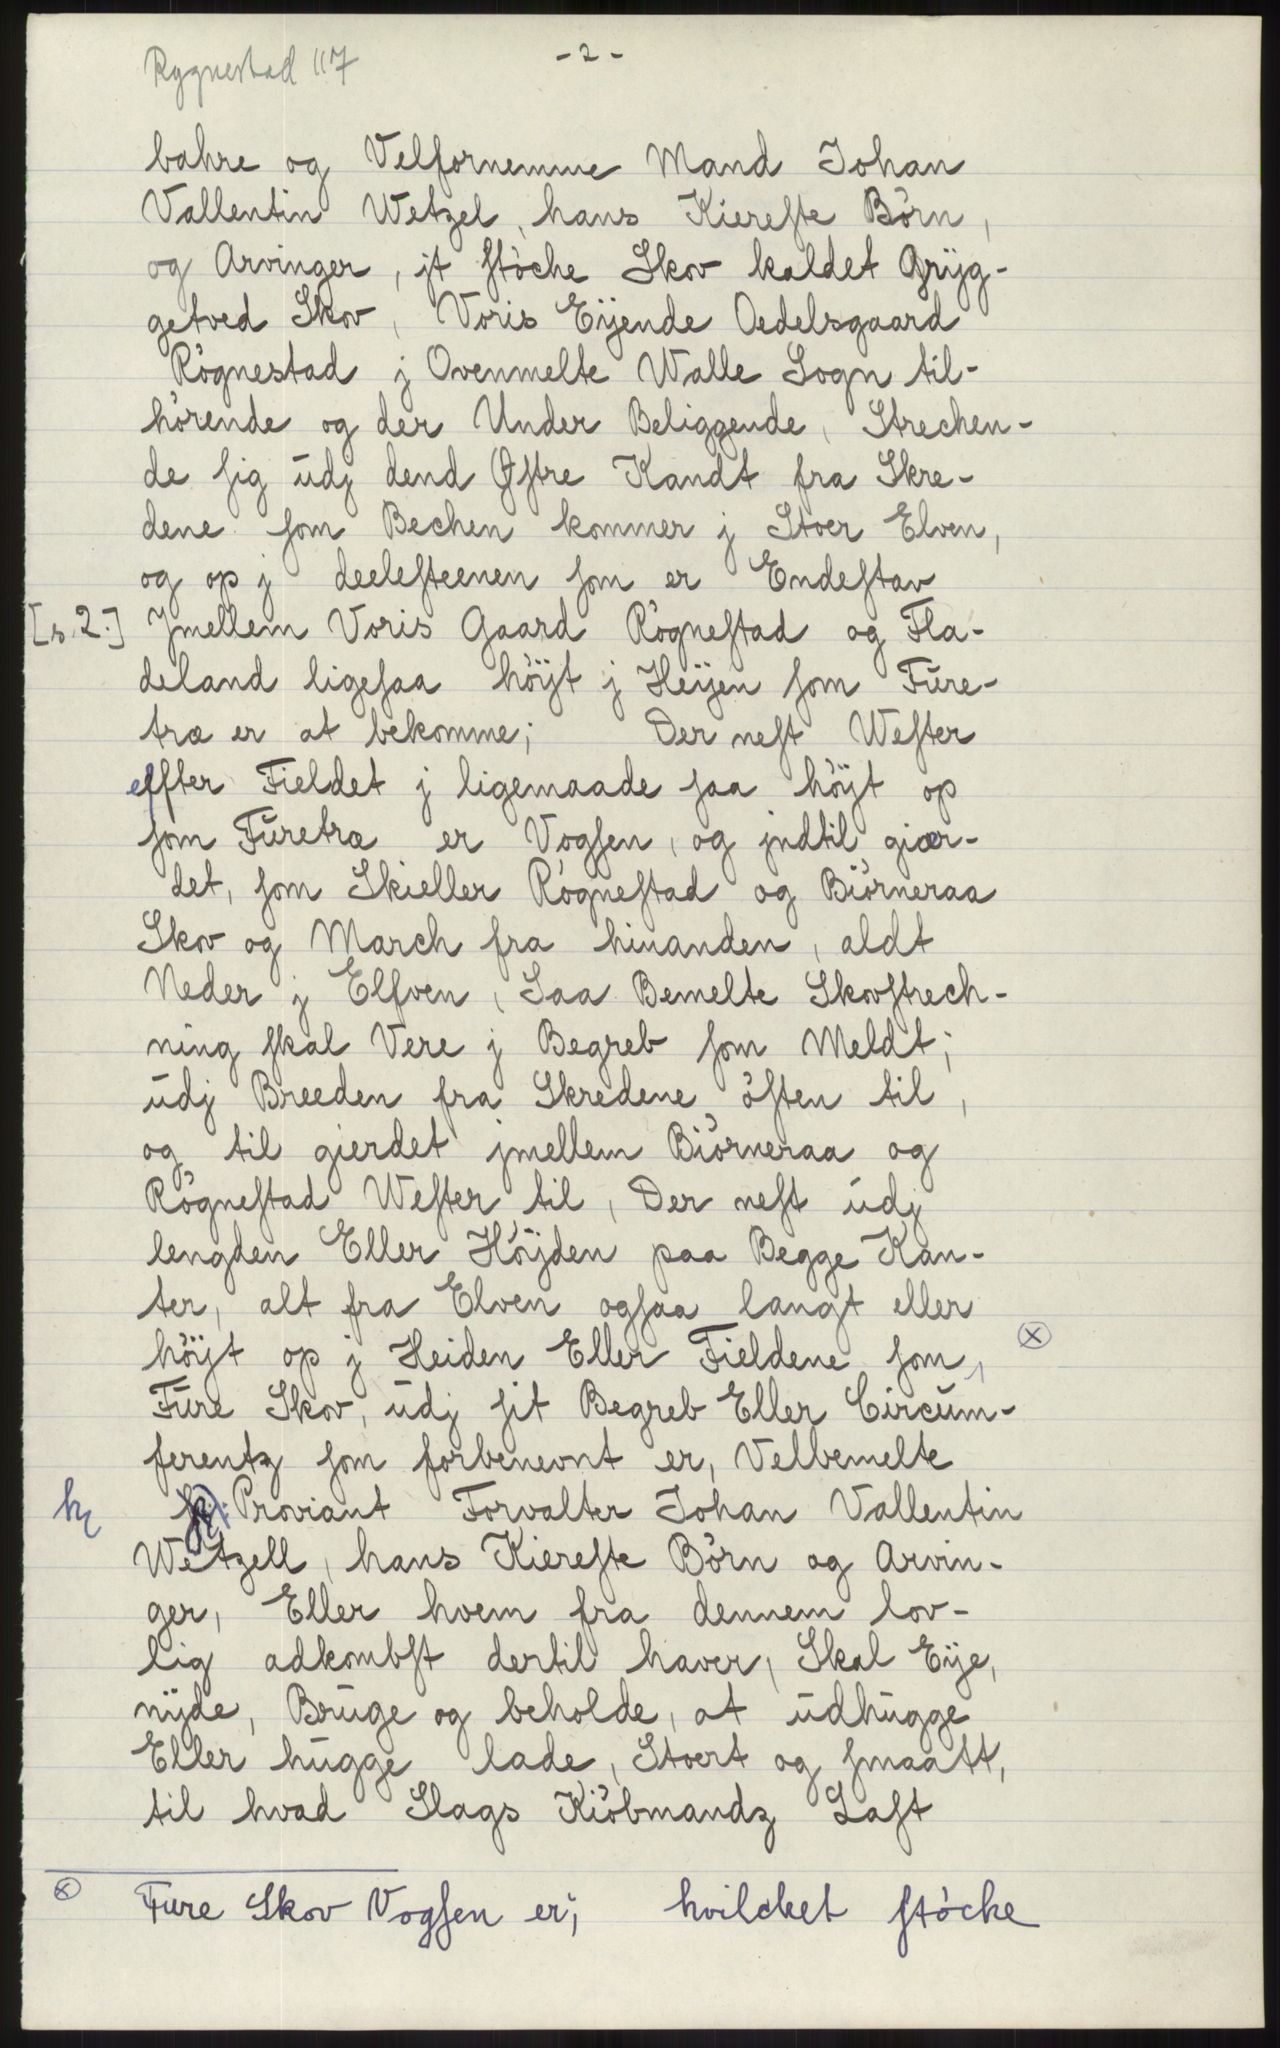 Rygnestad 117
- 2 -
bahre og Velfornemme Mand Johan
Vallentin Wetzel, hans Kiereſte Börn,
og Arvinger, jt ſtöche Skov kaldet Grÿg-
getved Skov, Voris Eÿende Oedelsgaard
Rögnestad j Ovenmelte Walle Sogn til-
hörende og der Under Beliggende, Strechen-
de ſig udj dend Øſtre Kandt fra Skre-
dene ſom Bechen kommer j Stoer Elven,
og op j deeleſteenen ſom er Endeſtav
[s. 2.] Jmellem Voris Gaard Rögneſtad og Fla-
deland ligeſaa höÿt j Heÿen ſom Fure-
træ er at bekomme; Der neſt Weſter
effter Fieldet j ligemaade ſaa höÿt op
ſom Furetræ er Vogſen, og jndtil giær-
det, ſom Skieller Rögneſtad og Biörneraa
Skov og March fra hinanden, aldt
Neder j Elfven, Saa Bemelte Skovſtrech-
ning ſkal Vere j Begreb ſom Meldt;
udj Breeden fra Skredene öſten til,
og til gierdet jmellem Biörneraa og
Rögneſtad Weſter til, Der neſt udj
lengden Eller Höÿden paa Begge Kan-
ter, alt fra Elven ogſaa langt eller
höÿt op j Heiden Eller Fieldene ſom ⓧ
Fure Skov, udj ſit Begreb Eller Circum-
ferentz ſom forbenevnt er, Velbemelte
Proviant Forvalter Johan Vallentin
Wetzell, hans Kiereſte Börn og Arvin-
ger, Eller hvem fra dennem lov-
lig adkombſt dertil haver, Skal Eÿe,
nÿde, Bruge og beholde, at udhugge
Eller hugge lade, Stoert og ſmaatt,
til hvad Slags Kiöbmandz Laſt
ⓧ Fure Skov Vogſen er; hvilcket ſtöcke